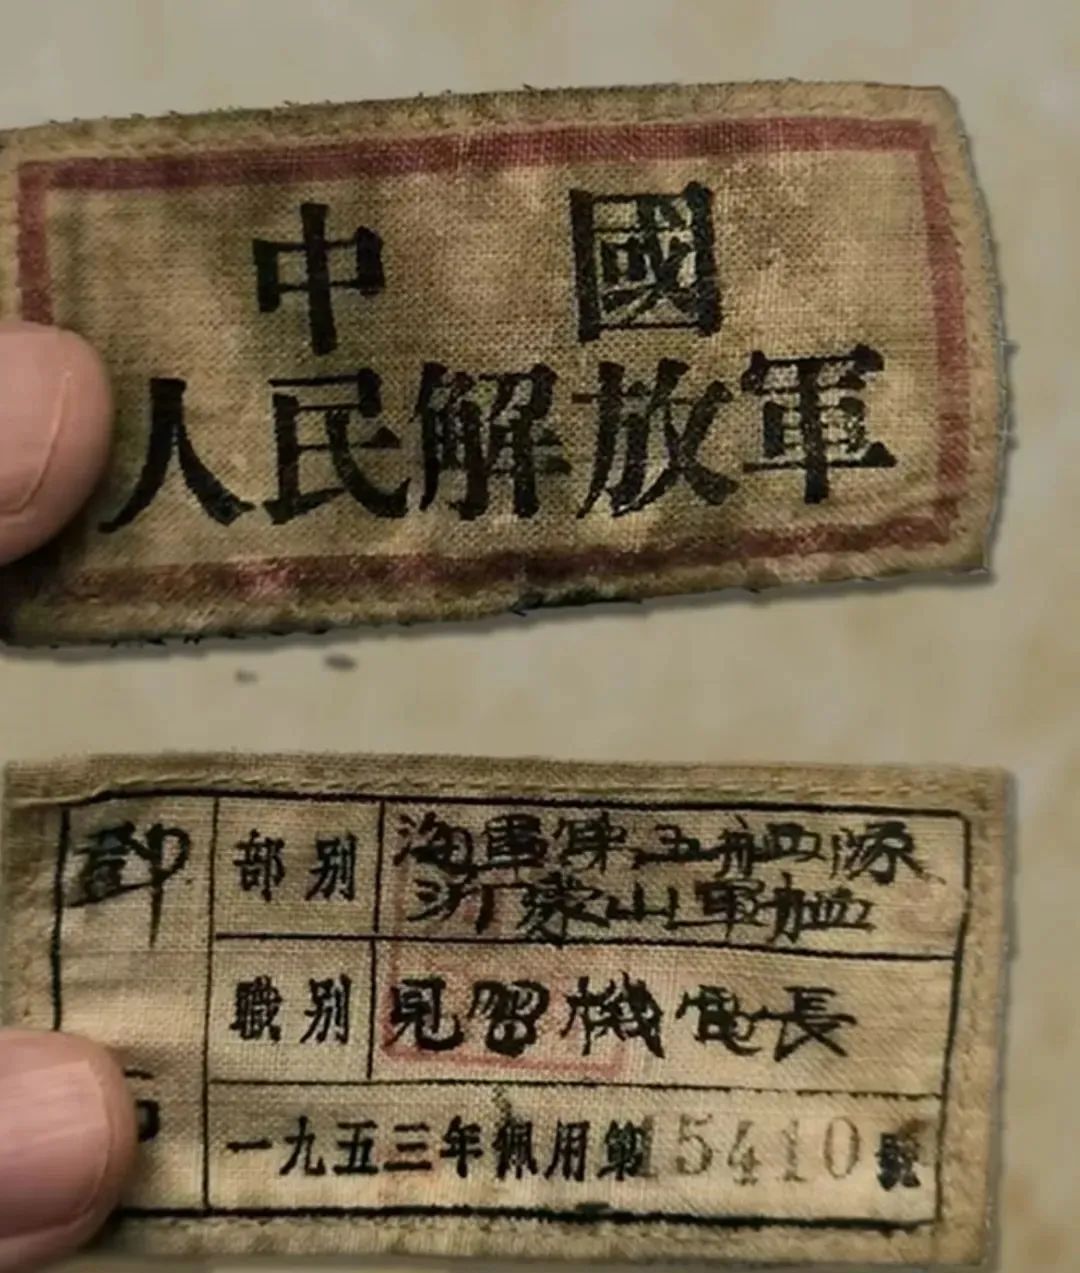 中國
人民解放軍
鄧
部別 海軍第五艦隊
沂蒙山軍艦
職別 見習機電長
一九五三年佩用第15410號